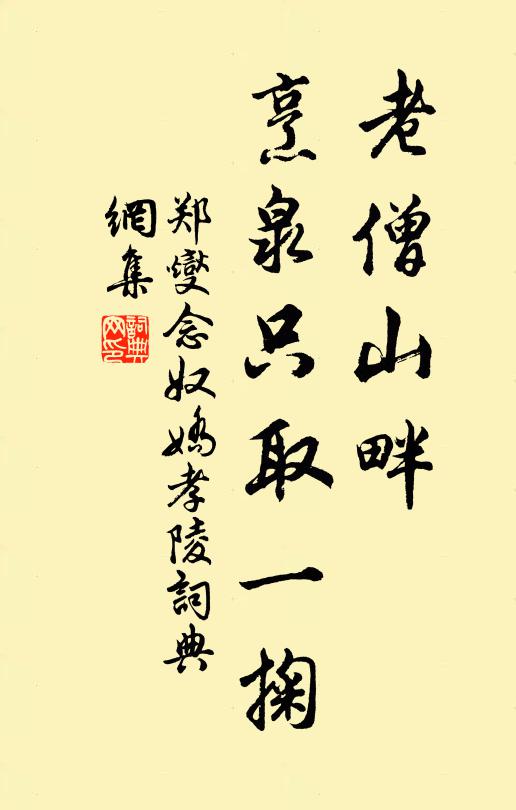 老僧山畔
烹泉只取一掬
郑燮念奴嬌孝陵詞典
網集
詞典
网印